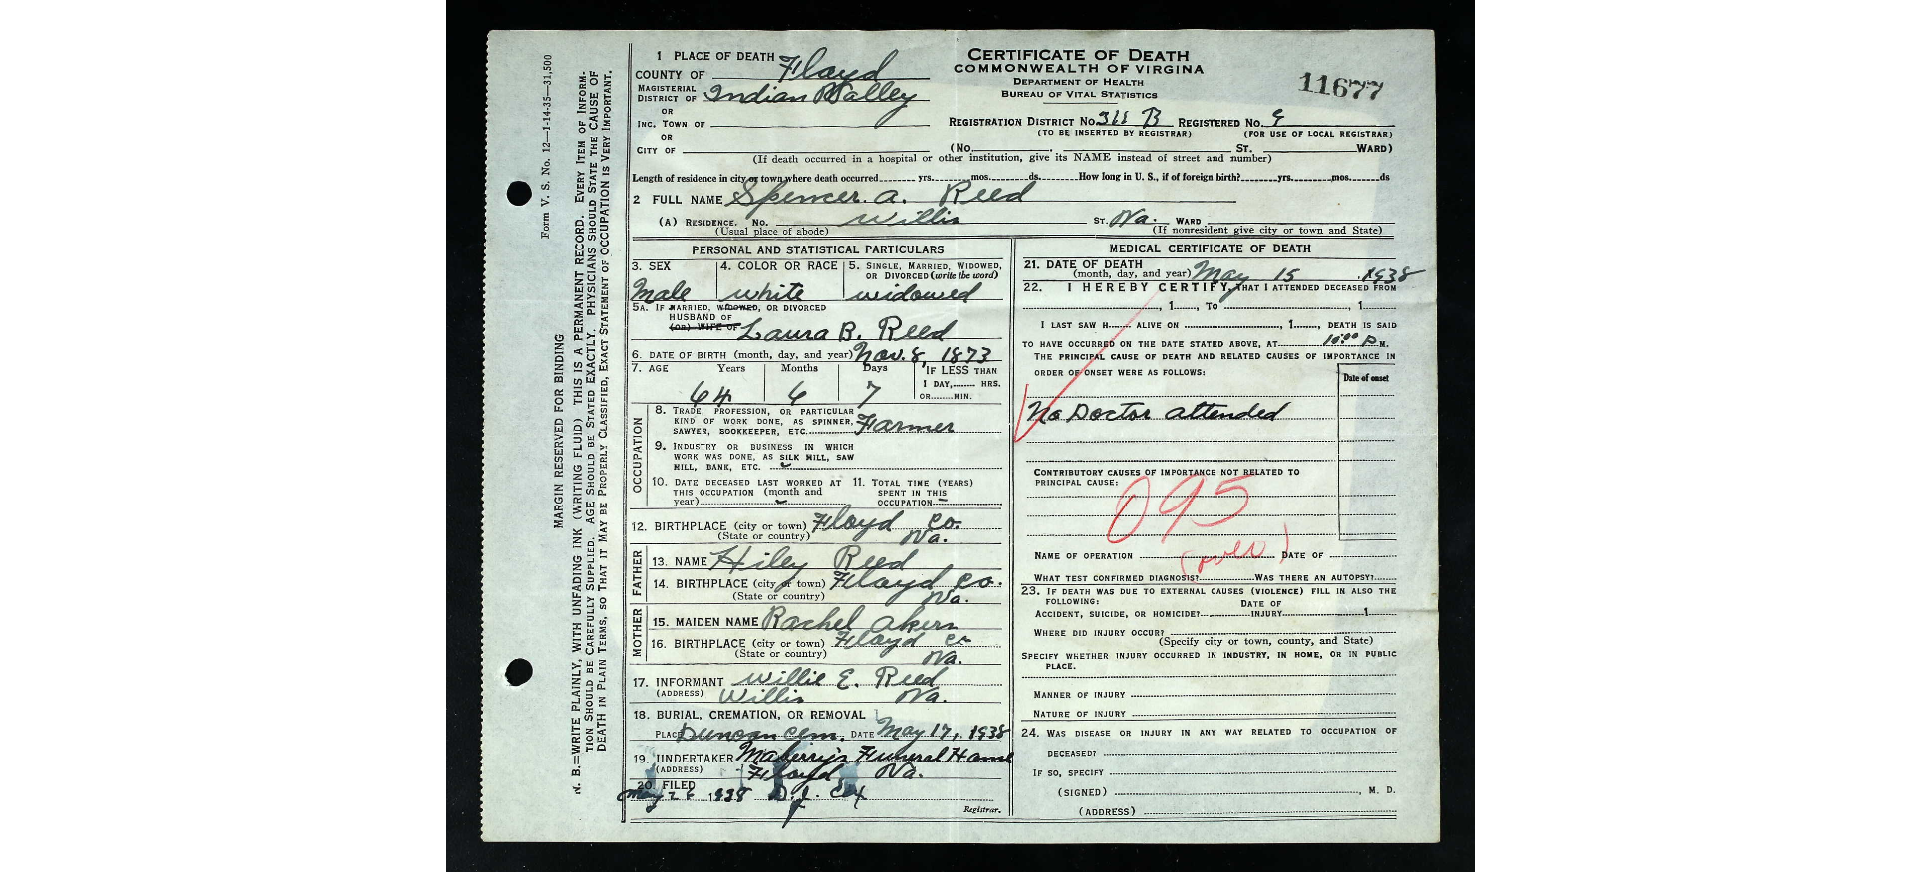 Form V. S. No. 12—1-14-35—31,500
MARGIN RESERVED FOR BINDING
N. B.=WRITE PLAINLY, WITH UNFADING INK (WRITING FLUID) THIS IS A PERMANENT RECORD. EVERY ITEM OF INFORM-
TION SHOULD BE CAREFULLY SUPPLIED. AGE SHOULD BE STATED EXACTLY. PHYSICIANS SHOULD STATE THE CAUSE OF
DEATH IN PLAIN TERMS, SO THAT IT MAY BE PROPERLY CLASSIFIED, EXACT STATEMENT OF OCCUPATION IS VERY IMPORTANT.
CERTIFICATE OF DEATH
COMMONWEALTH OF VIRGINA
DEPARTMENT OF HEALTH
BUREAU OF VITAL STATISTICS
11677
1 PLACE OF DEATH
COUNTY OF Floyd
MAGISTERIAL
DISTRICT OF Indian Valley
OR
INC. TOWN OF
OR
CITY OF
REGISTRATION DISTRICT No. 311 B REGISTERED No. 9
(TO BE INSERTED BY REGISTRAR) (FOR USE OF LOCAL REGISTRAR)
(No. ST. WARD)
(If death occurred in a hospital or other institution, give its NAME instead of street and number)
Length of residence in city or town where death occurred yrs. mos. ds. How long in U. S., if of foreign birth? yrs. mos. ds
2 FULL NAME Spencer. A. Reed
(A) RESIDENCE. No. Willis ST. Va. WARD
(Usual place of abode) (If nonresident give city or town and State)
PERSONAL AND STATISTICAL PARTICULARS
3. SEX 4. COLOR OR RACE 5. SINGLE, MARRIED, WIDOWED,
OR DIVORCED (write the word)
Male white widowed
5A. IF MARRIED, WIDOWED, OR DIVORCED
HUSBAND OF
(OR) WIFE OF Laura B. Reed
6. DATE OF BIRTH (month, day, and year) Nov. 8, 1873
7. AGE Years Months Days IF LESS THAN
1 DAY, HRS.
OR MIN.
64 6 7
OCCUPATION
8. TRADE, PROFESSION, OR PARTICULAR
KIND OF WORK DONE, AS SPINNER,
SAWYER, BOOKKEEPER, ETC. Farmer
9. INDUSTRY OR BUSINESS IN WHICH
WORK WAS DONE, AS SILK MILL, SAW
MILL, BANK, ETC.
10. DATE DECEASED LAST WORKED AT
THIS OCCUPATION (month and
year)
11. TOTAL TIME (YEARS)
SPENT IN THIS
OCCUPATION
12. BIRTHPLACE (city or town) Floyd Co.
(State or country) Va.
FATHER
13. NAME Hiley Reed
14. BIRTHPLACE (city or town) Floyd Co.
(State or country) Va.
MOTHER
15. MAIDEN NAME Rachel Akers
16. BIRTHPLACE (city or town) Floyd Co
(State or country) Va.
17. INFORMANT Willie E. Reed
(ADDRESS) Willis Va.
18. BURIAL, CREMATION, OR REMOVAL
PLACE Duncan Cem. DATE May 17, 1938
19. UNDERTAKER Maberry's Funeral Home
(ADDRESS) Floyd Va.
20. FILED
May 26 1938 D. J. Cox
Registrar.
MEDICAL CERTIFICATE OF DEATH
21. DATE OF DEATH
(month, day, and year) May 15, 1938
22. I HEREBY CERTIFY, THAT I ATTENDED DECEASED FROM
, 1 , TO , 1
I LAST SAW H ALIVE ON , 1 , DEATH IS SAID
TO HAVE OCCURRED ON THE DATE STATED ABOVE, AT 10:00 P M.
THE PRINCIPAL CAUSE OF DEATH AND RELATED CAUSES OF IMPORTANCE IN
ORDER OF ONSET WERE AS FOLLOWS:
Date of onset
No Doctor attended
CONTRIBUTORY CAUSES OF IMPORTANCE NOT RELATED TO
PRINCIPAL CAUSE:
095
(over)
NAME OF OPERATION DATE OF
WHAT TEST CONFIRMED DIAGNOSIS? WAS THERE AN AUTOPSY?
23. IF DEATH WAS DUE TO EXTERNAL CAUSES (VIOLENCE) FILL IN ALSO THE
FOLLOWING:
DATE OF
ACCIDENT, SUICIDE, OR HOMICIDE? INJURY 1
WHERE DID INJURY OCCUR?
(Specify city or town, county, and State)
SPECIFY WHETHER INJURY OCCURRED IN INDUSTRY, IN HOME, OR IN PUBLIC
PLACE.
MANNER OF INJURY
NATURE OF INJURY
24. WAS DISEASE OR INJURY IN ANY WAY RELATED TO OCCUPATION OF
DECEASED?
IF SO, SPECIFY
(SIGNED) , M. D.
(ADDRESS)